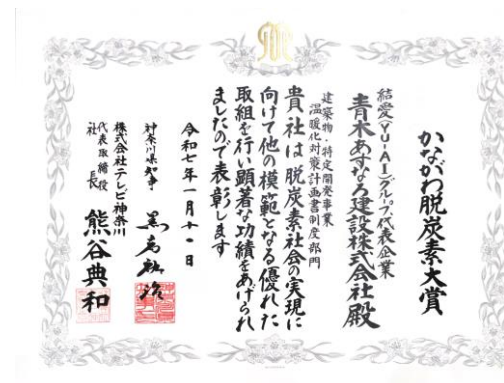 かながわ脱炭素大賞
結愛(YU-AI)グループ代表企業
青木あすなろ建設株式会社殿
建築物・特定開発事業
温暖化対策計画書制度部門
貴社は脱炭素社会の実現に
向けて他の模範となる優れた
取組を行い顕著な功績をあげられ
ましたので表彰します
令和七年一月十一日
神奈川県知事 黒岩祐治
株式会社テレビ神奈川
代表取締役
社長 熊谷典和